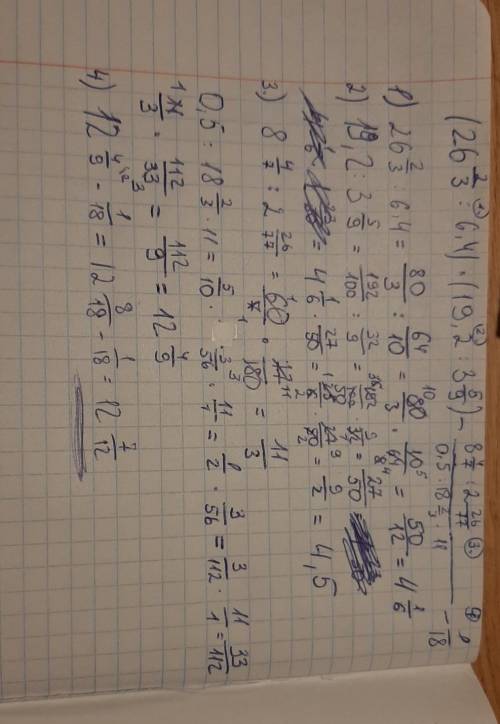 (26 2/3 : 6,4) · (19,2 : 3 5/9) - (8 4/7 : 2 26/77) / (0,5 : 18 2/3 · 11) - 1/18
1) 26 2/3 : 6,4 = 80/3 : 64/10 = 80/3 · 10/64 = 50/12 = 4 1/6
2) 19,2 : 3 5/9 = 192/100 : 32/9 = 27/50
= 4 1/6 · 27/50 = 9/2 = 4,5
3) 8 4/7 : 2 26/77 = 60/7 · 77/180 = 11/3
0,5 : 18 2/3 · 11 = 5/10 · 3/56 · 11/1 = 1/2 · 3/56 = 3/112 · 11/1 = 33/112
11/3 · 112/33 = 112/9 = 12 4/9
4) 12 4/9 - 1/18 = 12 8/18 - 1/18 = 12 7/12